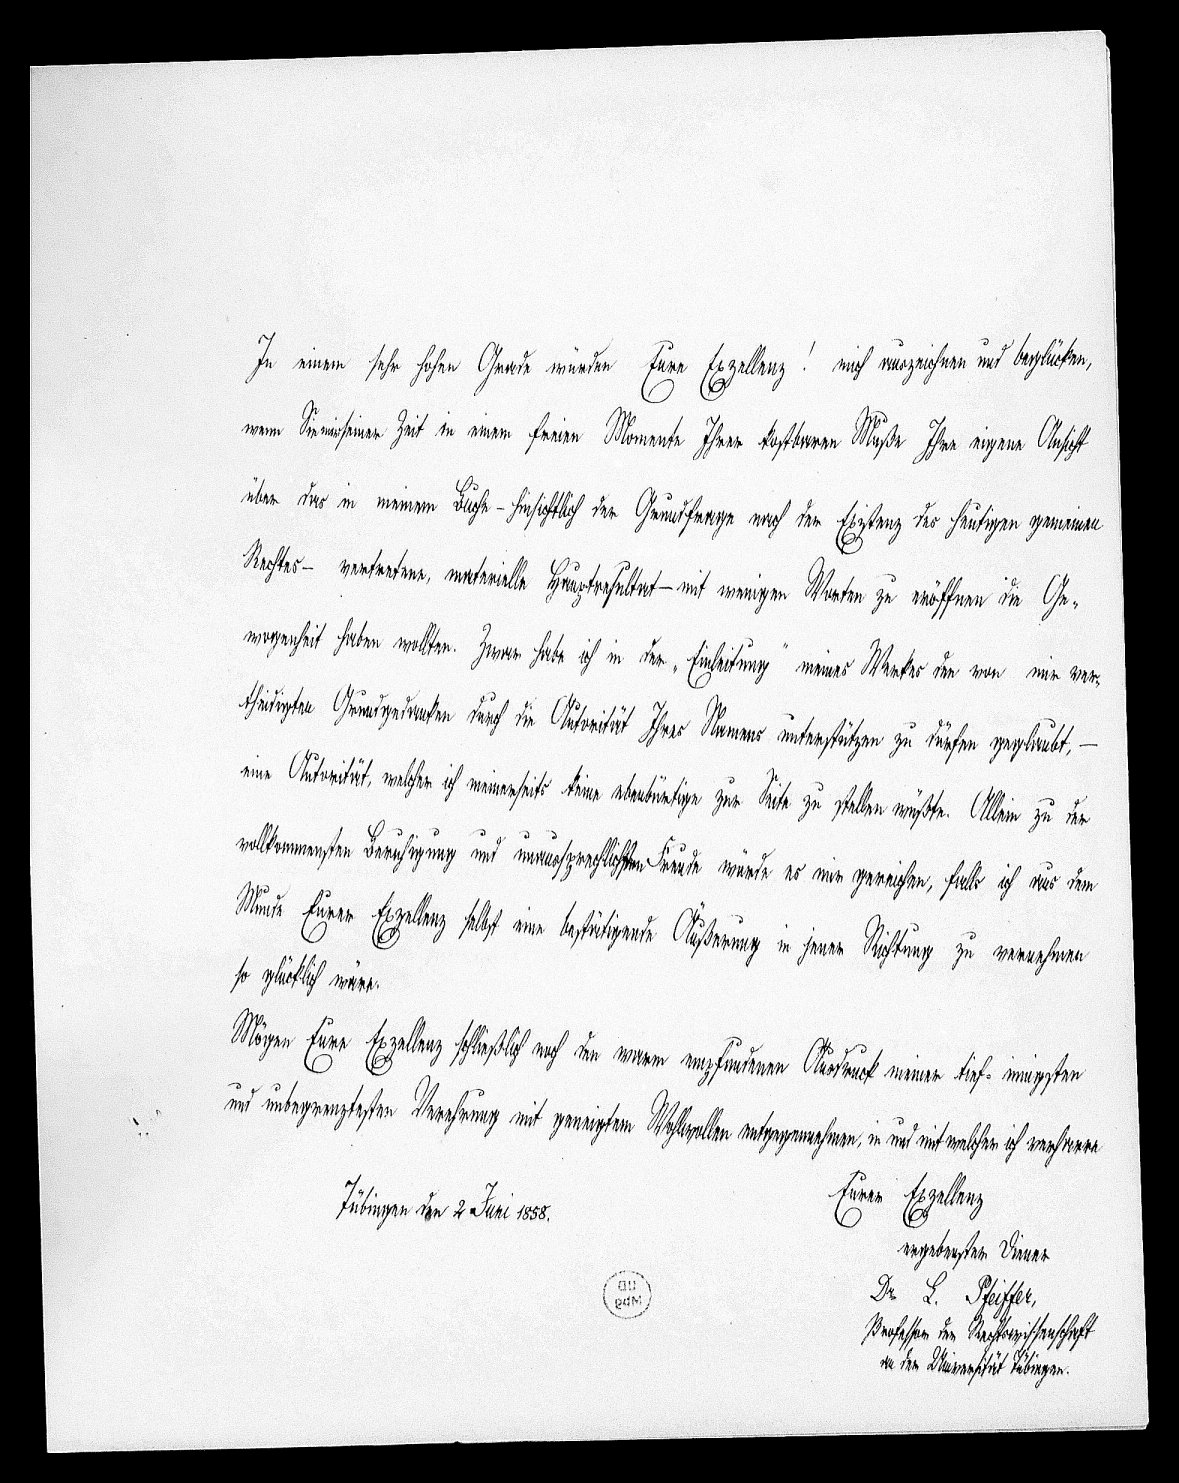 In einem sehr hohen Grade würden Eure Exzellenz! mich auszeichnen und beglücken,
wenn Sie mir seiner Zeit in einem freien Momente Ihrer kostbaren Muße Ihre eigene Ansicht
über das in meinem Buche – hinsichtlich der Grundfrage nach der Existenz des heutigen gemeinen
Rechtes – vertretene, materielle Hauptresultat – mit wenigen Worten zu eröffnen die Ge-
wogenheit haben wollten. Zwar habe ich in der „Einleitung" meines Werkes den von mir ver-
theidigten Grundgedanken durch die Autorität Ihres Namens unterstützen zu dürfen geglaubt, –
eine Autorität, welcher ich meinerseits keine ebenbürtige zur Seite zu stellen wüßte. Allein zu der
vollkommensten Beruhigung und unaussprechlichsten Freude würde es mir gereichen, falls ich aus dem
Munde Eurer Exzellenz selbst eine bestätigende Äußerung in jener Richtung zu vernehmen
so glücklich wäre.
Mögen Eure Exzellenz schließlich noch den warm empfundenen Ausdruck meiner tief-innigsten
und unbegrenztesten Verehrung mit geneigtem Wohlwollen entgegennehmen, in und mit welcher ich verharre
Eurer Exzellenz
Tübingen den 2 Juni 1858.
ergebenster Diener
Dr. L. Pfeiffer,
Professor der Rechtswissenschaft
an der Universität Tübingen.